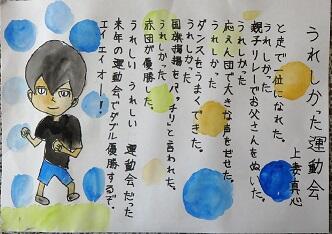 うれしかった運動会
上妻真心
と走で一位になれた。
うれしかった
親子リレーでお父さんをぬいた。
うれしかった
応えん団で大きな声をだせた。
うれしかった
ダンスをうまくできた。
うれしかった
国旗掲揚をバッチリと言われた。
赤団が優勝した。
うれしい うれしい 運動会だった
来年の運動会でダブル優勝するぞ。
エイエイオー!